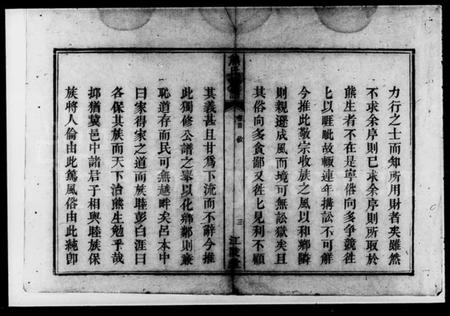 力行之士而知所用財者矣雖然
不求余序則已求余序則所取於
熊生者不在是寧俗向多爭競往
匕以睚眦故輒連年搆訟不可解
今推此敬宗收族之風以和鄉隣
則親遜成風而境可無訟獄矣且
其俗向多貪鄙又徃匕見利不顧
其義甚且甘爲下流而不辭今推
此獨修公譜之舉以化鄉鄰則廉
恥道存而民可無越畔矣呂本中
曰家得家之道而族睦彭白涯曰
各保其族而天下治熊生勉乎哉
抑猶冀邑中諸君子相與睦族保
族將人倫由此篤風俗由此純卽
三